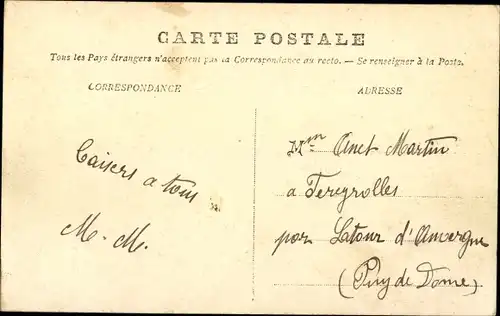 CARTE POSTALE
Tous les Pays étrangers n'acceptent pas la Correspondance au recto. — Se renseigner à la Poste.
CORRESPONDANCE
ADRESSE
Baisers a tous
M. M.
Mr Anet Martin
a Fereyrolles
par Latour d'Auvergne
(Puy de Dome)